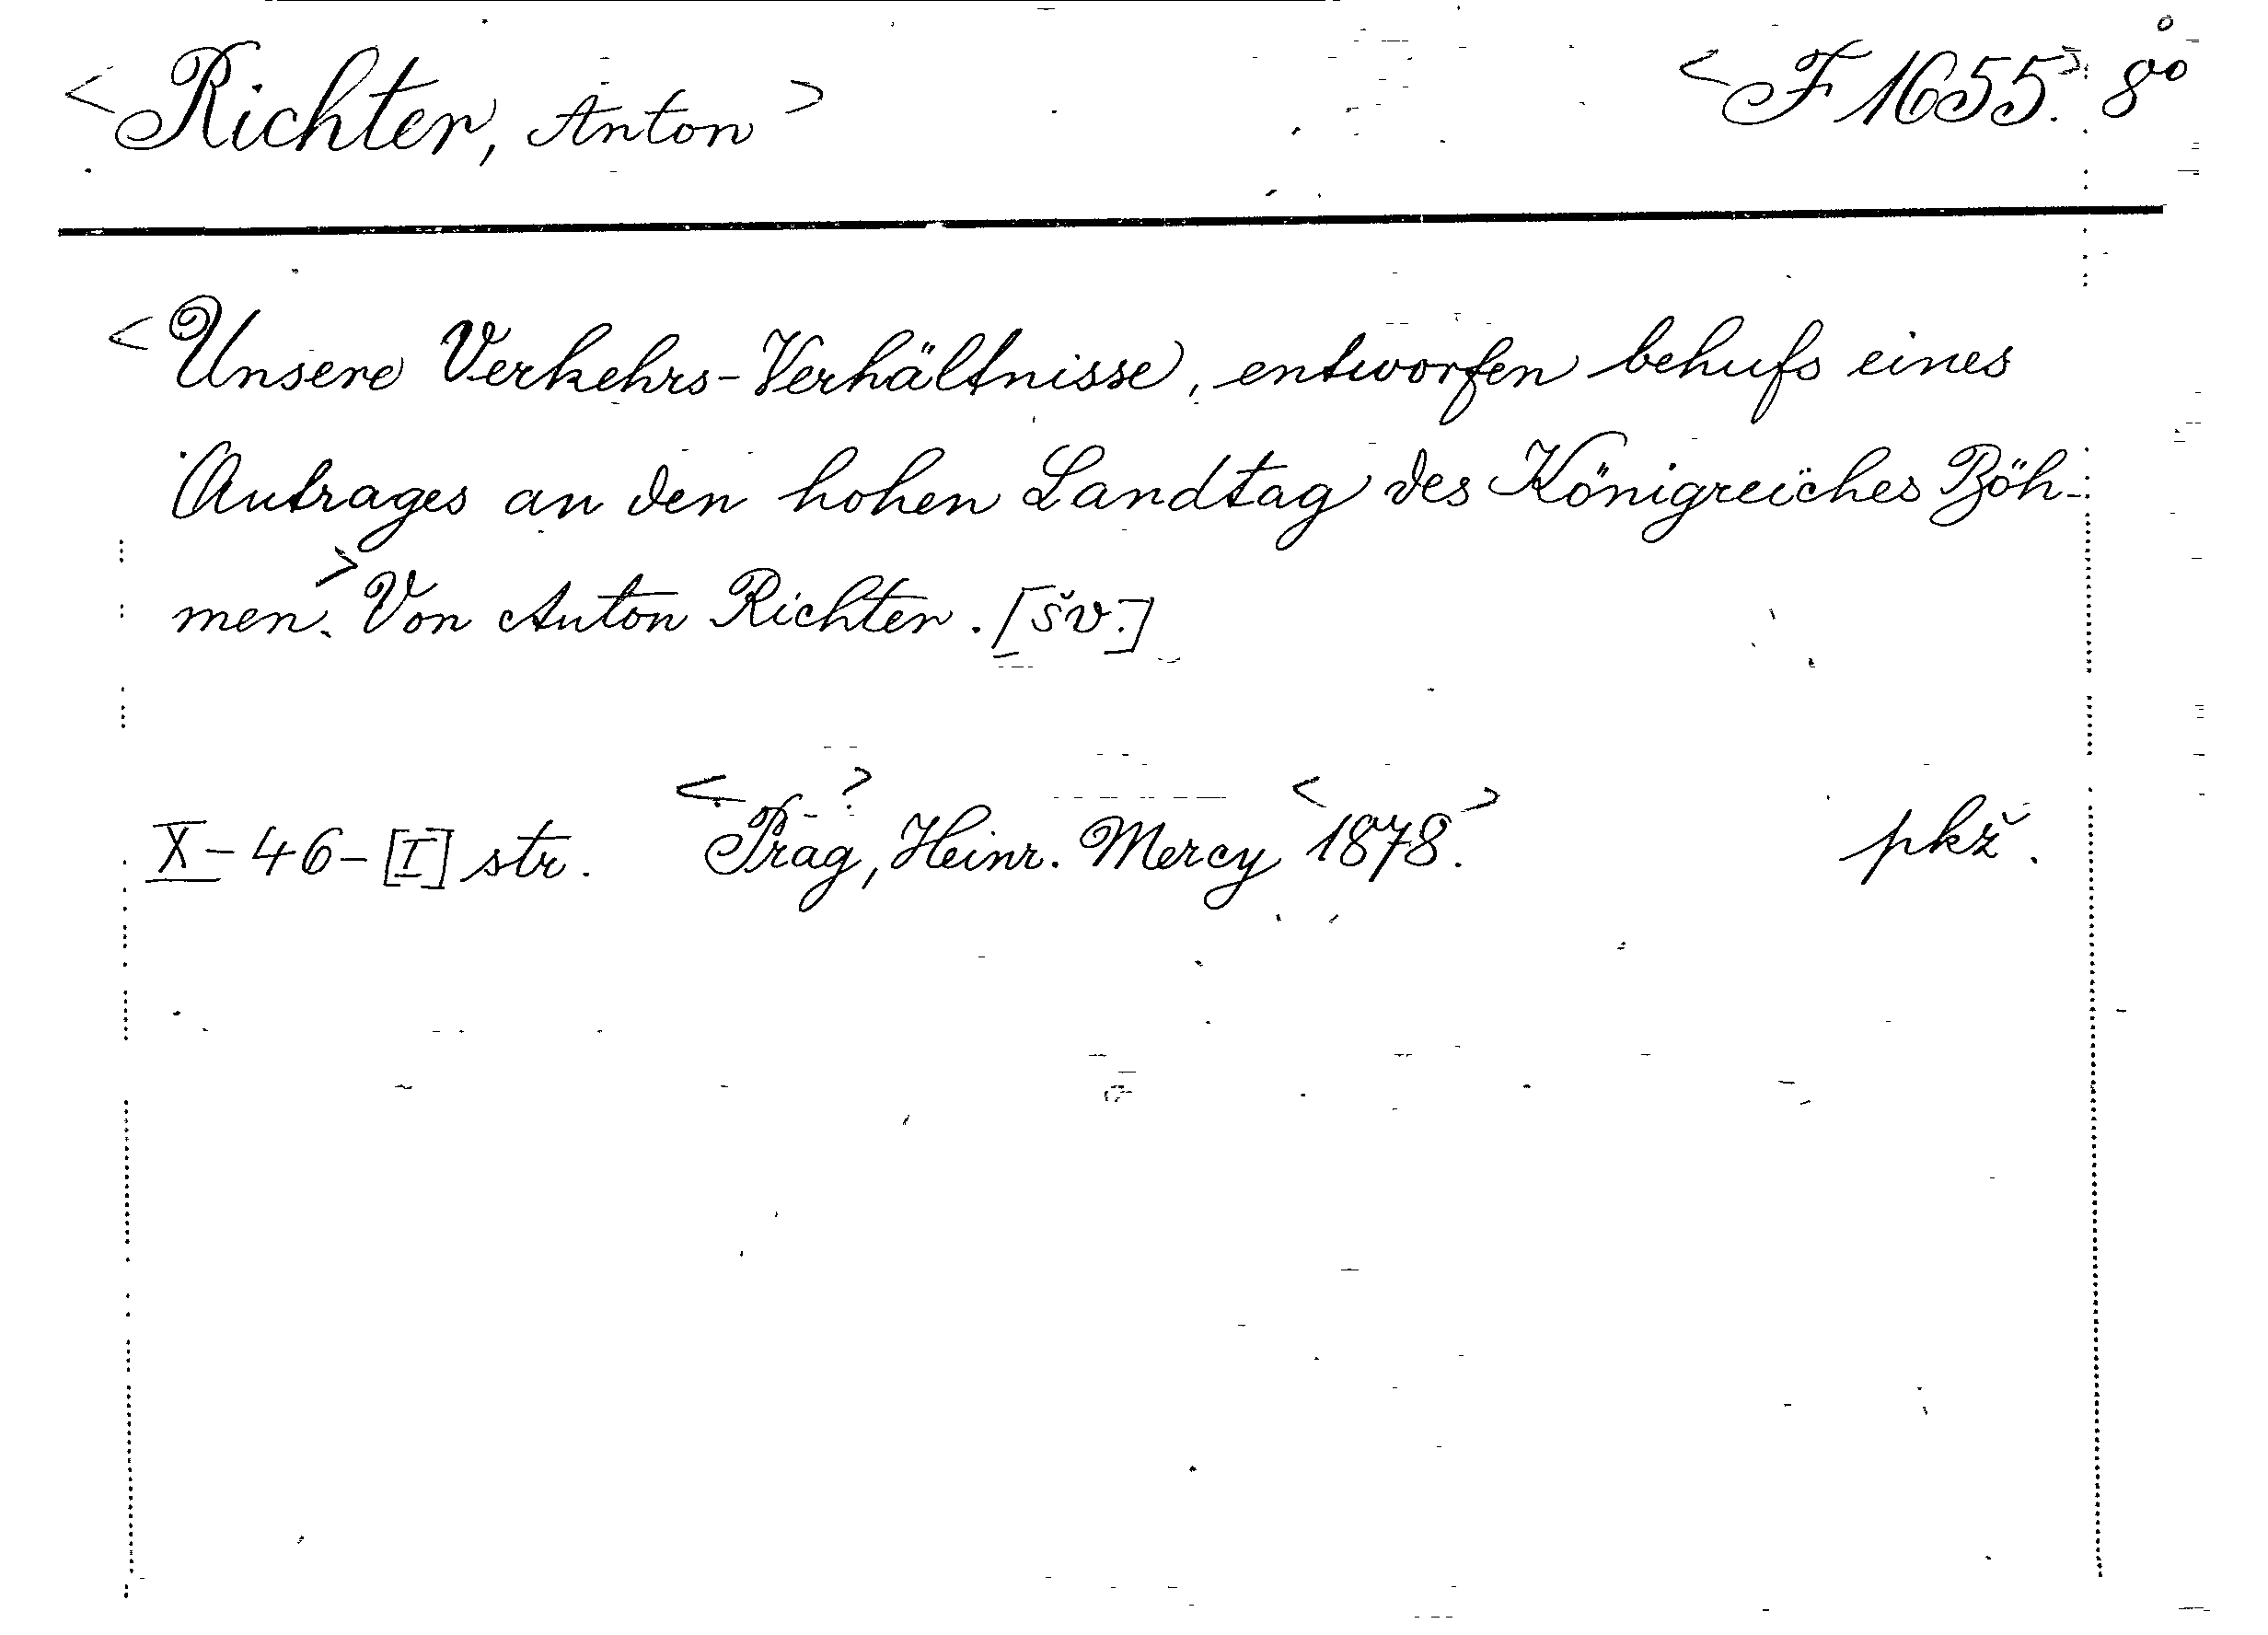 <Richter, Anton> <F 1655.> 8°
<Unsere Verkehrs-Verhältnisse, entworfen behufs eines
Antrages an den hohen Landtag des Königreiches Böh-
men.> Von Anton Richter. [šv.]
X-46-[I] str. <Prag,> Heinr. Mercy <1878.> pkž.